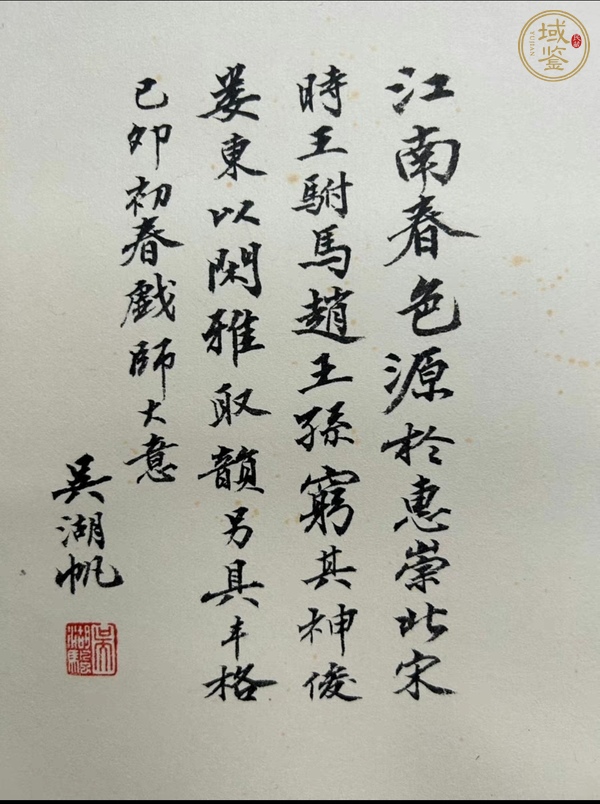 江南春色源於惠崇北宋
時王駙馬趙王孫窮其神俊
婁東以閑雅取韻另具丰格
己卯初春戲師大意
吳湖帆
域鉴
YUJIAN